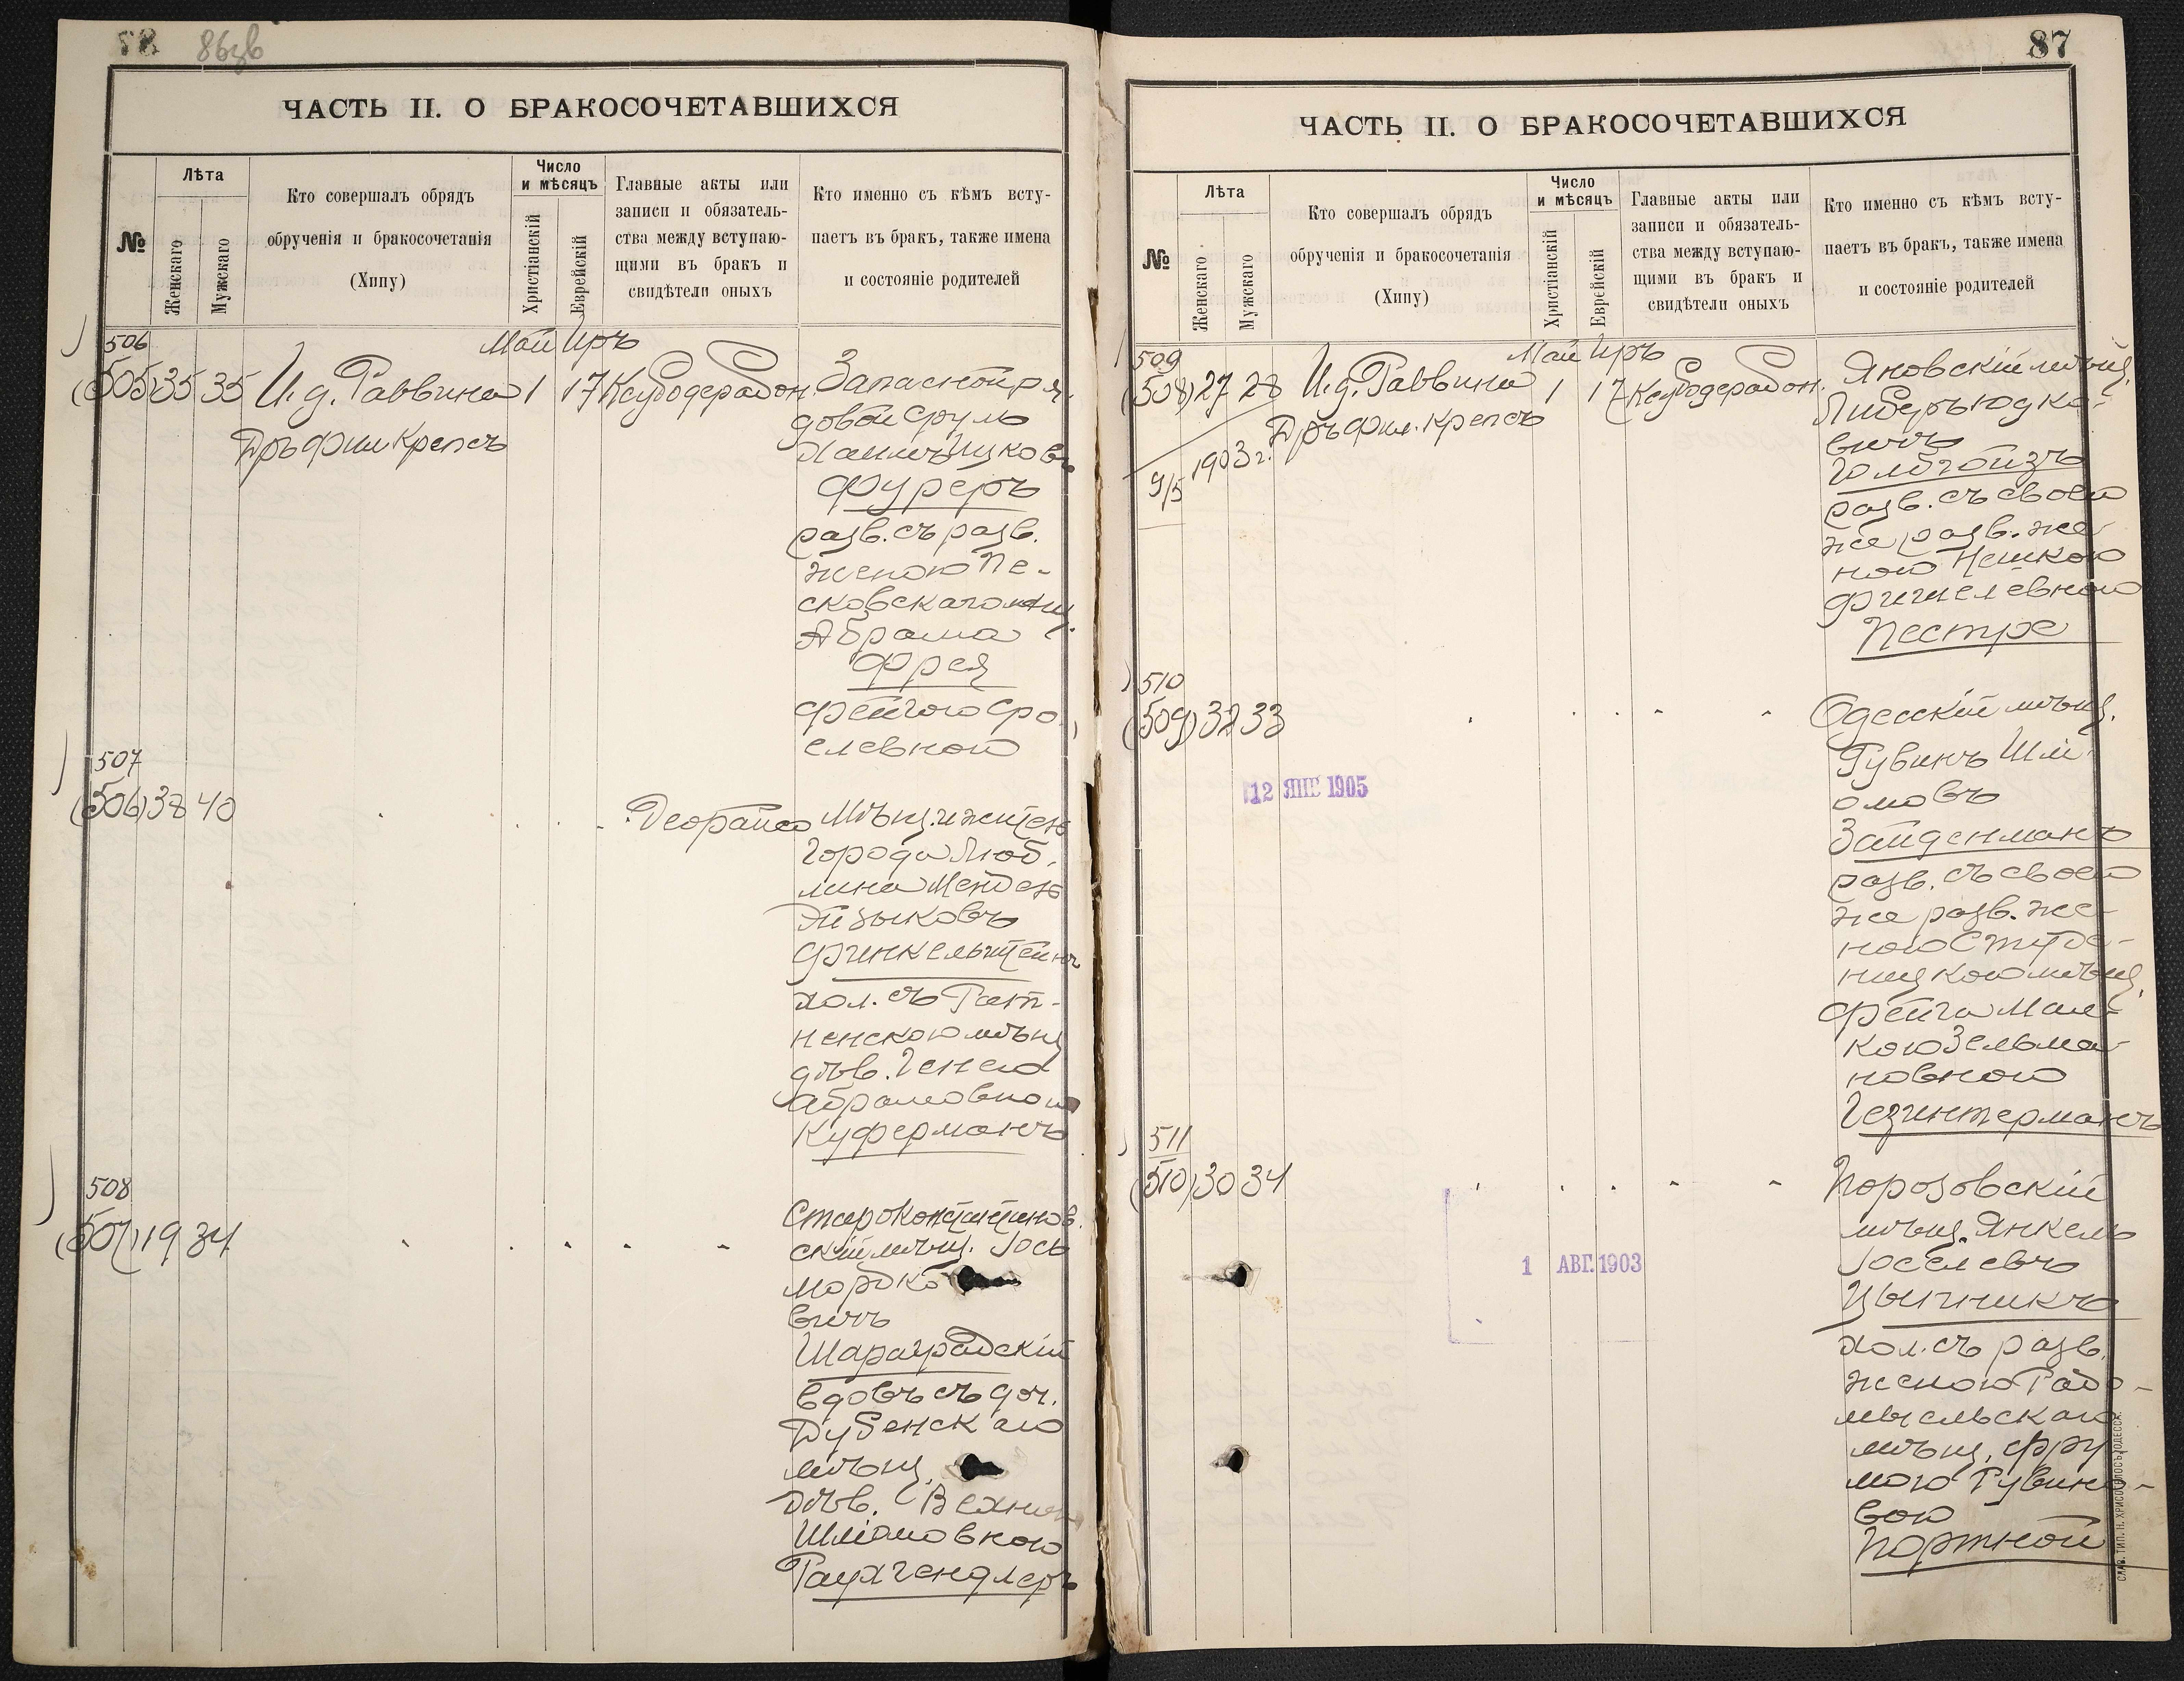 87 86зв
ЧАСТЬ II. О БРАКОСОЧЕТАВШИХСЯ
№
Лѣта
Женскаго
Мужскаго
Кто совершалъ обрядъ
обрученія и бракосочетанія
(Хипу)
Число
и мѣсяцъ
Христіанскій
Еврейскій
Главные акты или
записи и обязатель-
ства между вступаю-
щими въ бракъ и
свидѣтели оныхъ
Кто именно съ кѣмъ всту-
паетъ въ бракъ, также имена
и состояніе родителей
Май Иръ
506
(505) 35 35 И. д. Раввина 1 17 Ксубодерабон. Запасной ря
Дръ Фил Крепсъ
довой Сруль
Хаимъ Ицковъ
Фуреръ
разв. съ разв.
женою Пе-
сковскаго мѣщ.
Абрама
Фрея
Фейгою Сро
елевной
507
(506) 38 40 Деорайсо Мѣщ. и жител
города Люб
лина Мендель
Эйзыковъ
Финкельштейнъ
хол. съ Рат-
ненскою мѣщ
дѣв. Генею
Абрамовною
Куферманъ
508
(507) 19 34 Староконстантинов.
скій мѣщ. Іось
Мордко
вичъ
Шараградскій
вдовъ съ доч.
Дубенскаго
мѣщ.
дѣв. Вехнею
Шліомовною
Раухгендлеръ
87
ЧАСТЬ II. О БРАКОСОЧЕТАВШИХСЯ
№
Лѣта
Женскаго
Мужскаго
Кто совершалъ обрядъ
обрученія и бракосочетанія
(Хипу)
Число
и мѣсяцъ
Христіанскій
Еврейскій
Главные акты или
записи и обязатель-
ства между вступаю-
щими въ бракъ и
свидѣтели оныхъ
Кто именно съ кѣмъ всту-
паетъ въ бракъ, также имена
и состояніе родителей
Май Иръ
509
(508) 27 28 И. д. Раввина 1 17 Ксубодерабон. Яновскій мѣщ.
Дръ Фил. Крепсъ
9/5 1903 г.
Либеръ Юдко-
вичъ
разв. съ своей
же разв. же
ною Нешкою
Фишелевною
Пестре
510
(509) 32 33 Одесскій мѣщ.
12 ЯНВ 1905
Рувинъ Шлі
омовъ
Зайденманъ
разв. съ своей
же разв. же-
ною Студе-
ницкою мѣщ.
Фейга Мал-
кою Зельма-
новною
Гезинтерманъ
511
(510) 30 34 Порозовскій
мѣщ. Янкель
Іоселевъ
1 АВГ. 1903
хол. съ разв.
женою Радо-
мысльскаго
мѣщ. Фру
мою Рувино-
вою
Портной
СЛАВ. ТИП. Н. ХРИСОГЕЛОСЪ, ОДЕССА.